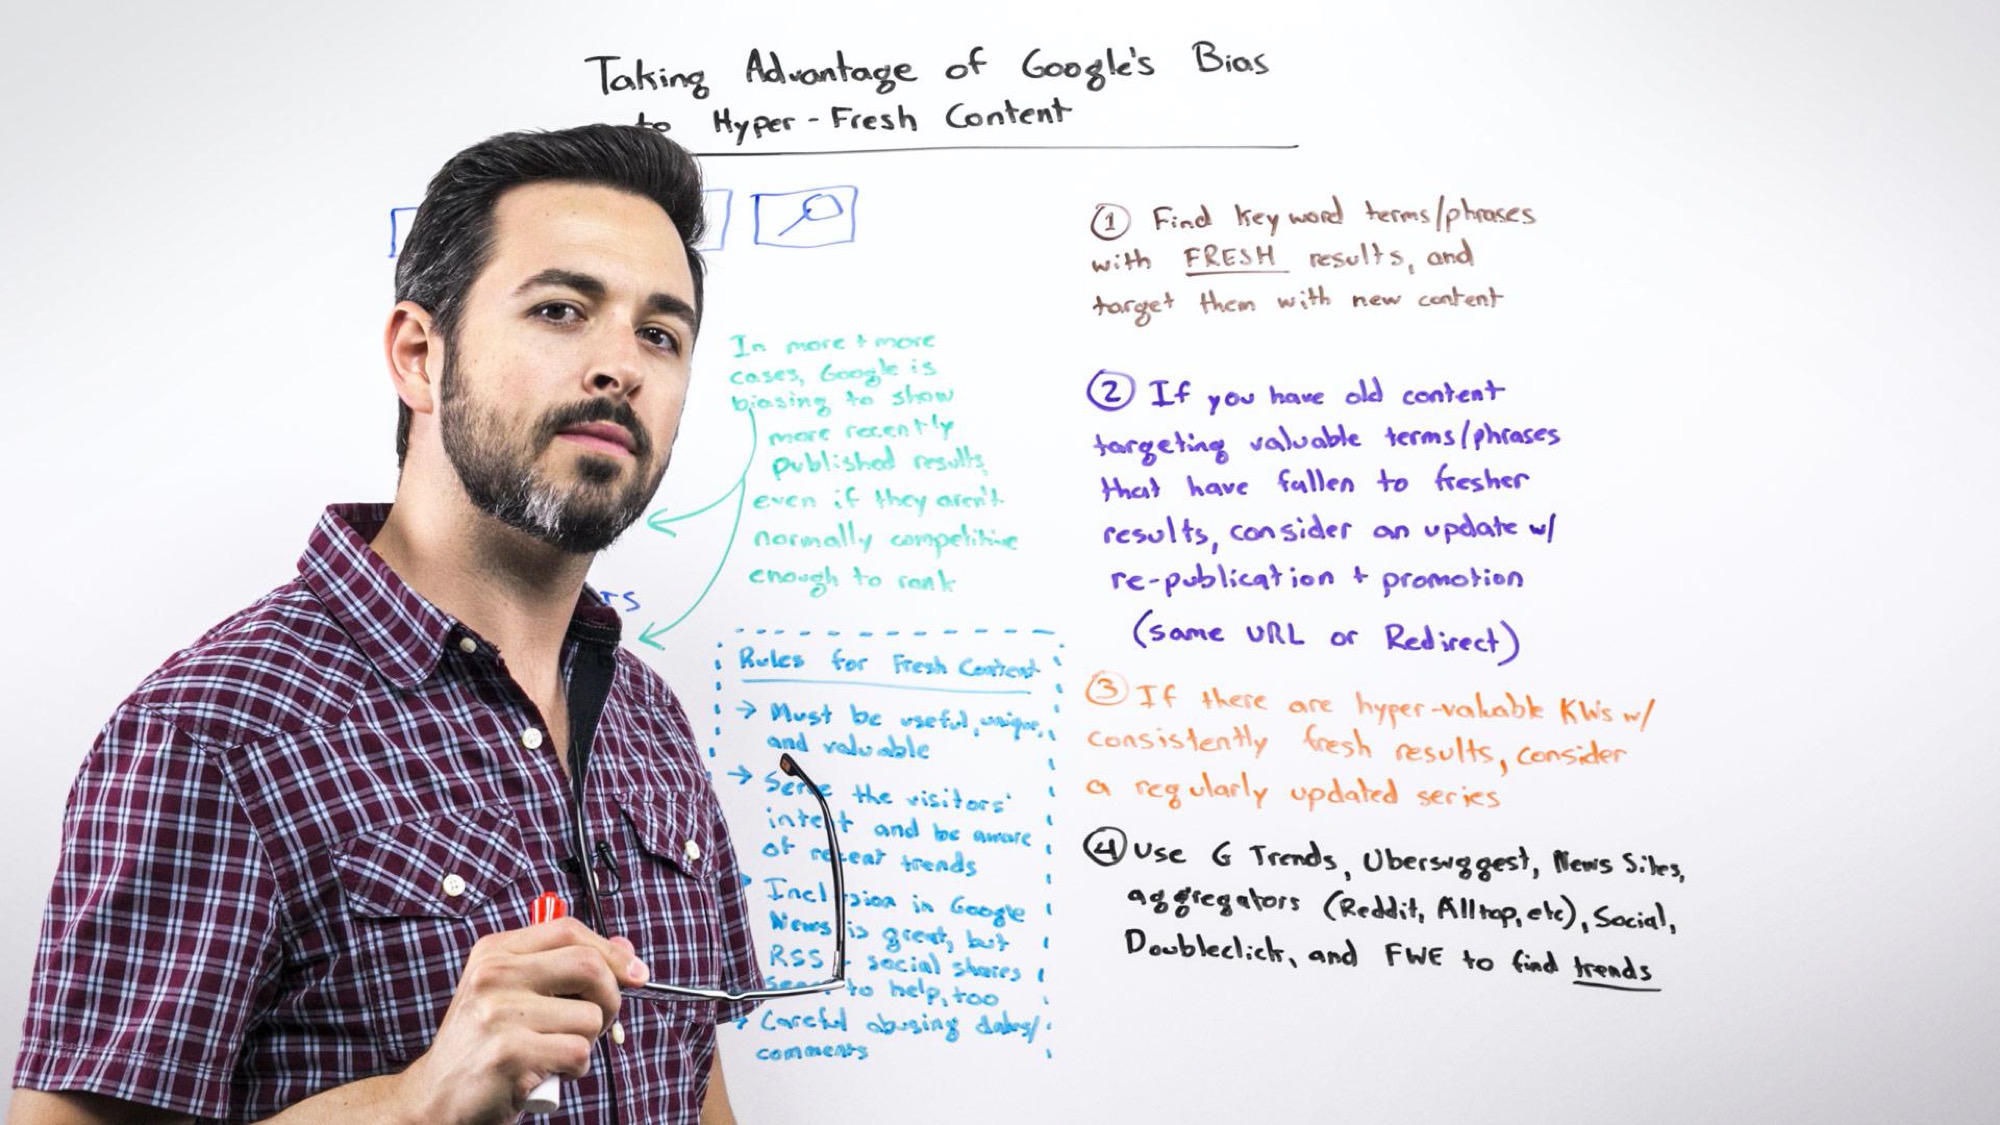 Taking Advantage of Google's Bias
to Hyper-Fresh Content
In more + more
cases, Google is
biasing to show
more recently
published results,
even if they aren't
normally competitive
enough to rank
TS
Rules for Fresh Content
→ Must be useful, unique,
and valuable
→ Serve the visitors'
intent and be aware
of recent trends
Inclusion in Google
News is great, but
RSS + social shares
seem to help, too
→ Careful abusing dates/
comments
① Find keyword terms/phrases
with FRESH results, and
target them with new content
② If you have old content
targeting valuable terms/phrases
that have fallen to fresher
results, consider an update w/
re-publication + promotion
(same URL or Redirect)
③ If there are hyper-valuable KWs w/
consistently fresh results, consider
a regularly updated series
④ Use G Trends, Ubersuggest, News Sites,
aggregators (Reddit, Alltop, etc), Social,
Doubleclick, and FWE to find trends